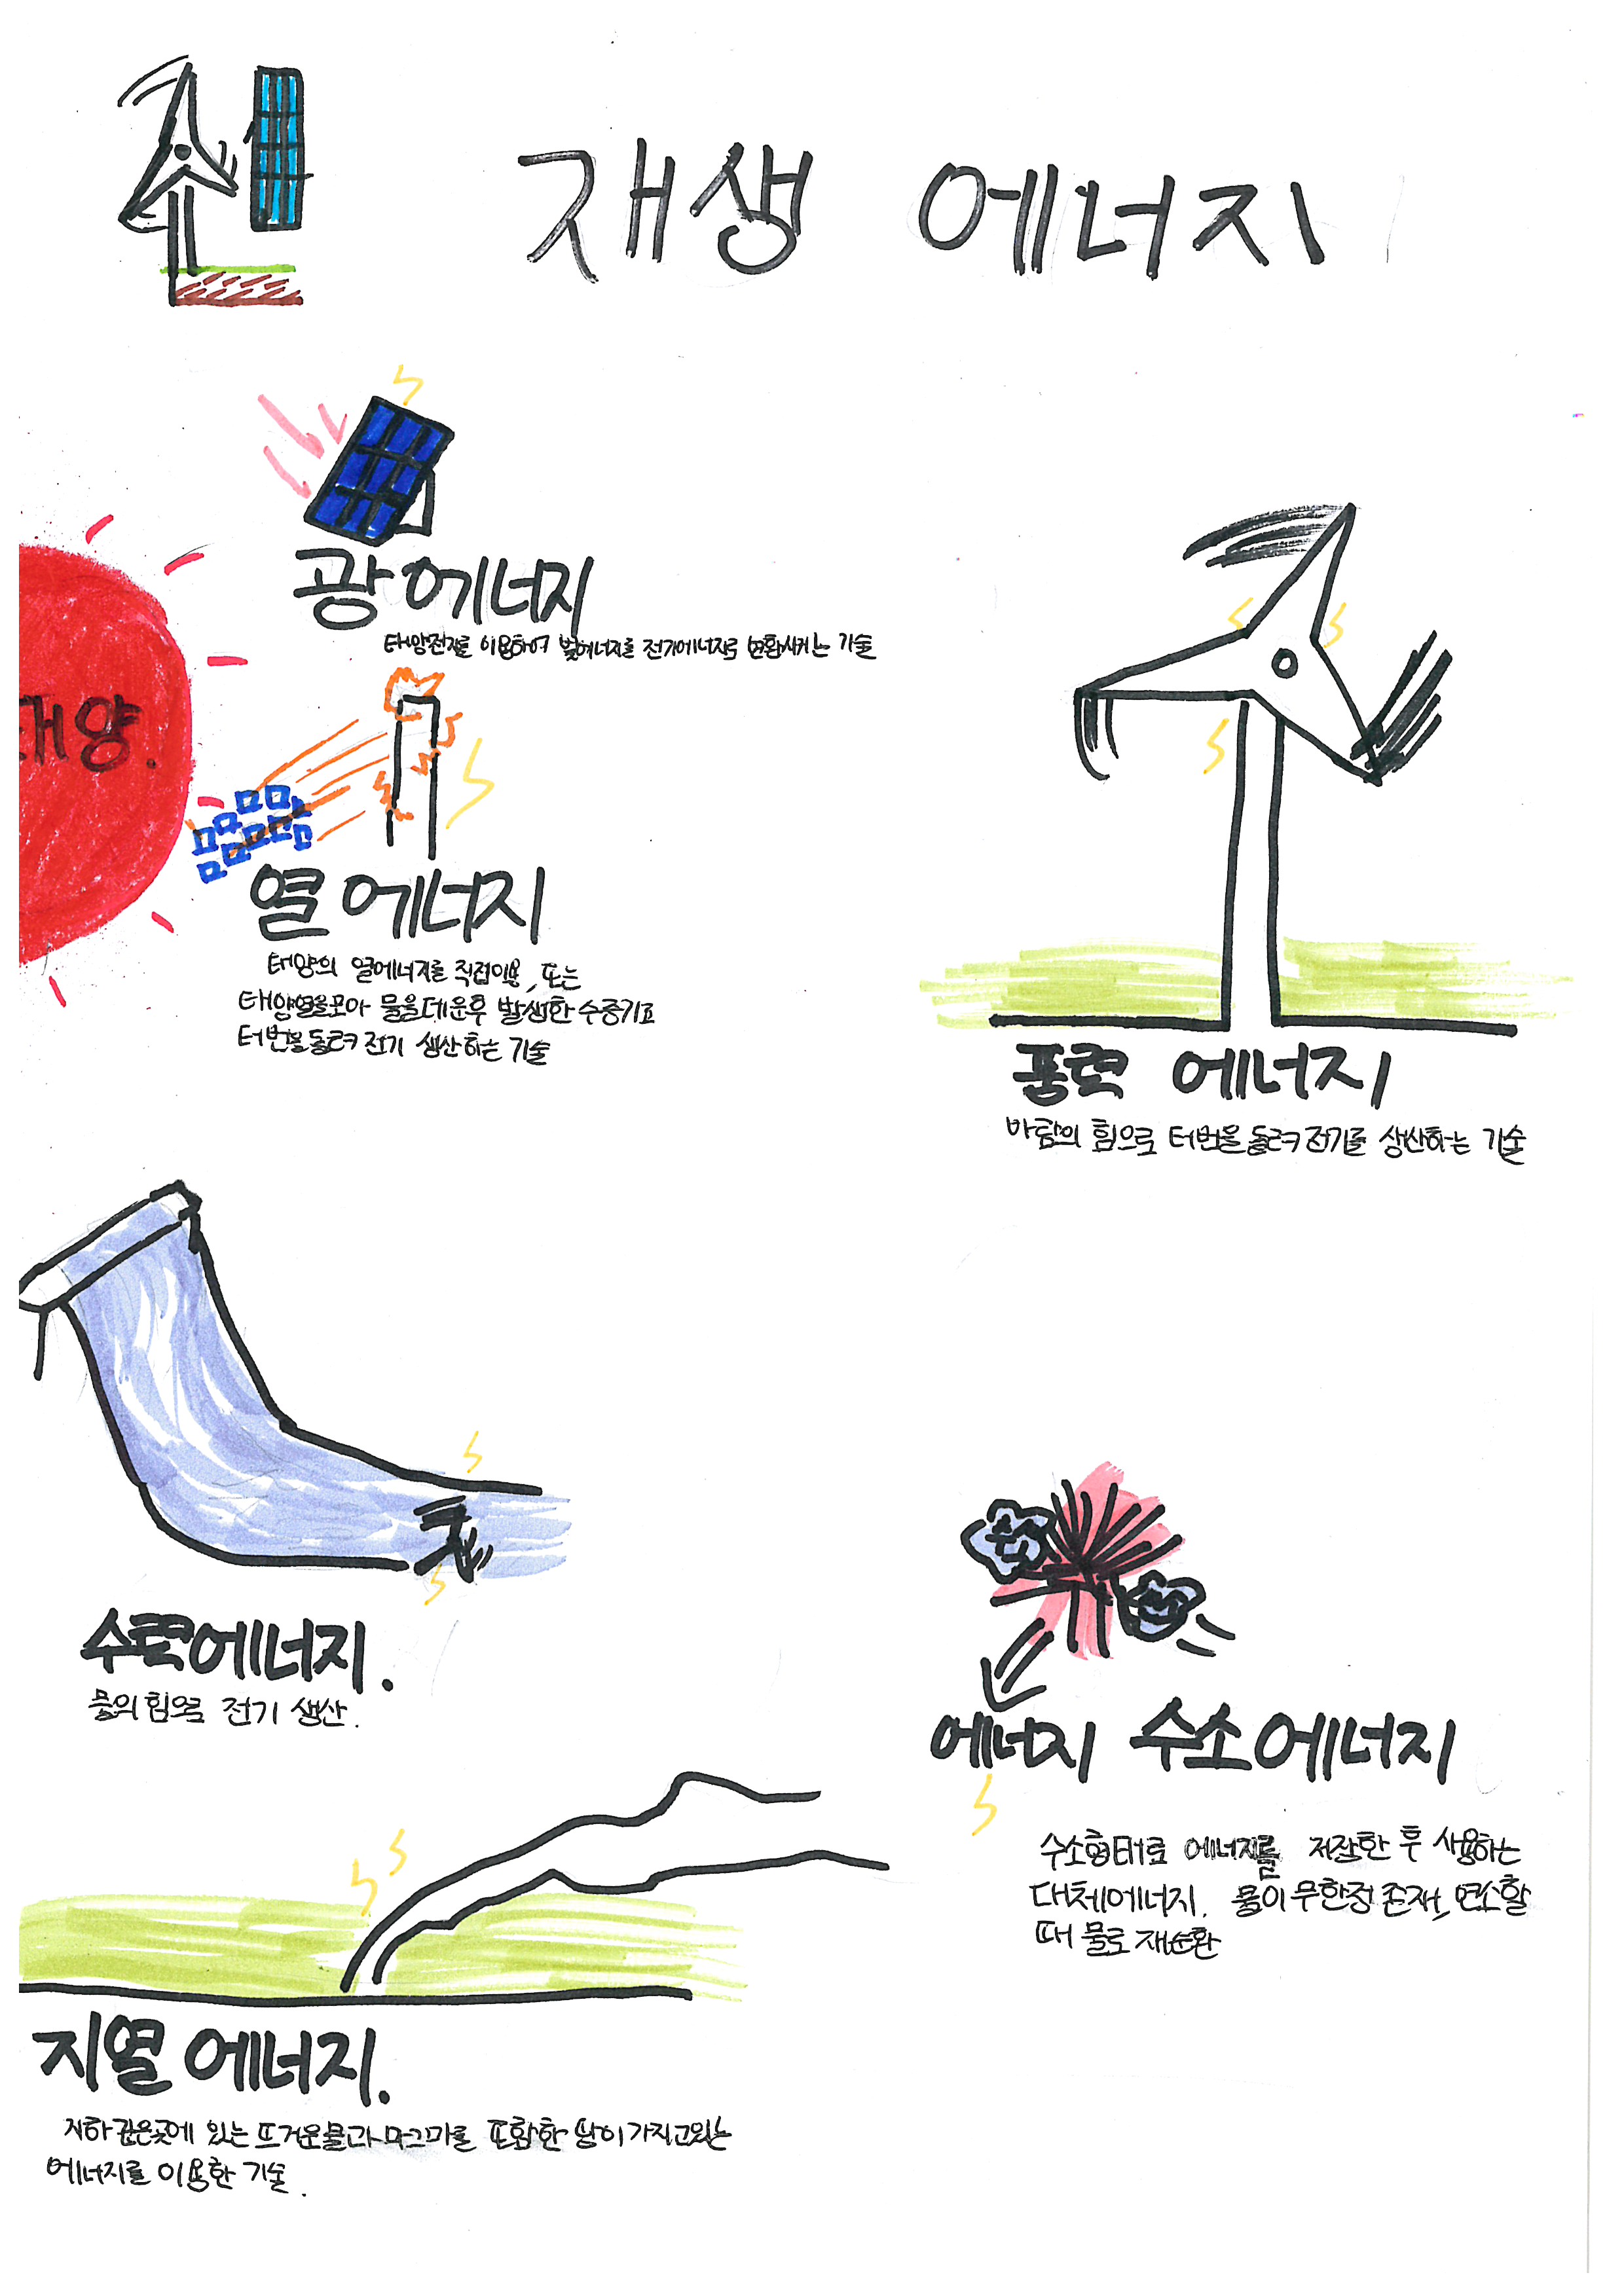 신 재생 에너지
광 에너지
태양전지를 이용하여 빛에너지를 전기에너지로 변환시키는 기술
태양.
열 에너지
태양의 열에너지를 직접이용, 또는
태양열을모아 물을데운후 발생한 수증기로
터번을돌려 전기 생산하는 기술
풍력 에너지
바람의 힘으로 터번을 돌려 전기를 생산하는 기술
수력에너지.
물의 힘으로 전기 생산.
에너지 수소에너지
수소형태로 에너지를 저장한 후 사용하는
대체에너지. 물이 무한정 존재, 연소할
때 물로 재순환
지열 에너지.
지하 깊은곳에 있는 뜨거운물과 마그마를 포함한 땅이 가지고있는
에너지를 이용한 기술.